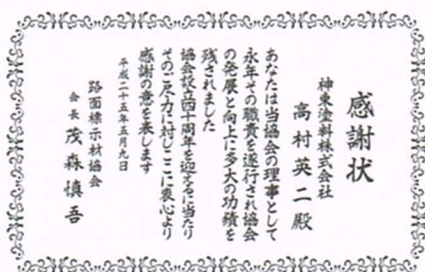 感謝状
神東塗料株式会社
高村英二殿
あなたは当協会の理事として
永年その職責を遂行され協会
の発展と向上に多大の功績を
残されました
協会設立四十周年を迎えるに当たり
そのご尽力に対しここに衷心より
感謝の意を表します
平成二十五年五月九日
路面標示材協会
会長 茂森慎吾